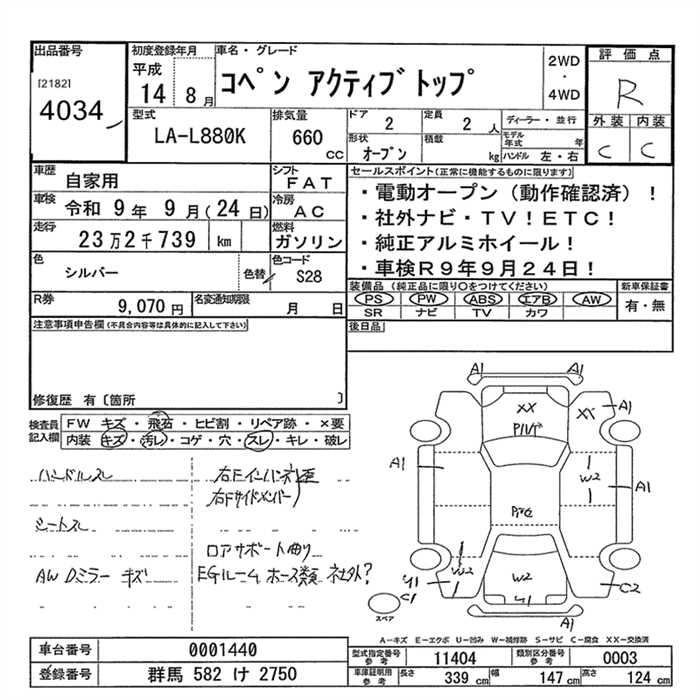 出品番号
[2182]
4034
初度登録年月
平成
14 8 月
車名・グレード
コペン アクティブトップ
2WD
・
4WD
評価点
R
外装 内装
C C
型式
LA-L880K
排気量
660
CC
ドア
2
定員
2 人
形状
オープン
積載
kg
ディーラー・並行
モデル年式 年
ハンドル 左・右
車歴
自家用
シフト
FAT
車検
令和 9 年 9 月 (24 日)
冷房
AC
走行
23 万 2 千 739 km
燃料
ガソリン
色
シルバー
色替
色コード
S28
R券
9,070 円
名変通知期限
月 日
セールスポイント(正常に機能するものに限ります)
・電動オープン(動作確認済)!
・社外ナビ・TV!ETC!
・純正アルミホイール!
・車検R9年9月24日!
装備品(純正品に限り○をつけてください)
PS PW ABS エアB AW
SR ナビ TV カワ
新車保証書
有・無
後日品
注意事項申告欄(不具合内容等は具体的に記入して下さい)
修復歴 有〔箇所 〕
検査員記入欄
FW キズ・飛石・ヒビ割・リペア跡・×要
内装 キズ・汚レ・コゲ・穴・スレ・キレ・破レ
ハンドルスレ
シートスレ
AW Dミラー キズ
右Fインパネ歪
右Fサイドメンバー
ロアサポート曲り
EGルーム ホース類 社外?
A1
A1
XX
XX
A1
A1
W2
A1
W2
W2
C2
A1
スペア
A-キズ E-エクボ U-凹み W-補修跡 S-サビ C-腐食 XX-交換済
車台番号
0001440
登録番号
群馬 582 け 2750
型式指定番号
参考
11404
類別区分番号
参考
0003
車庫証明用
参考
長さ 339 cm 幅 147 cm 高さ 124 cm